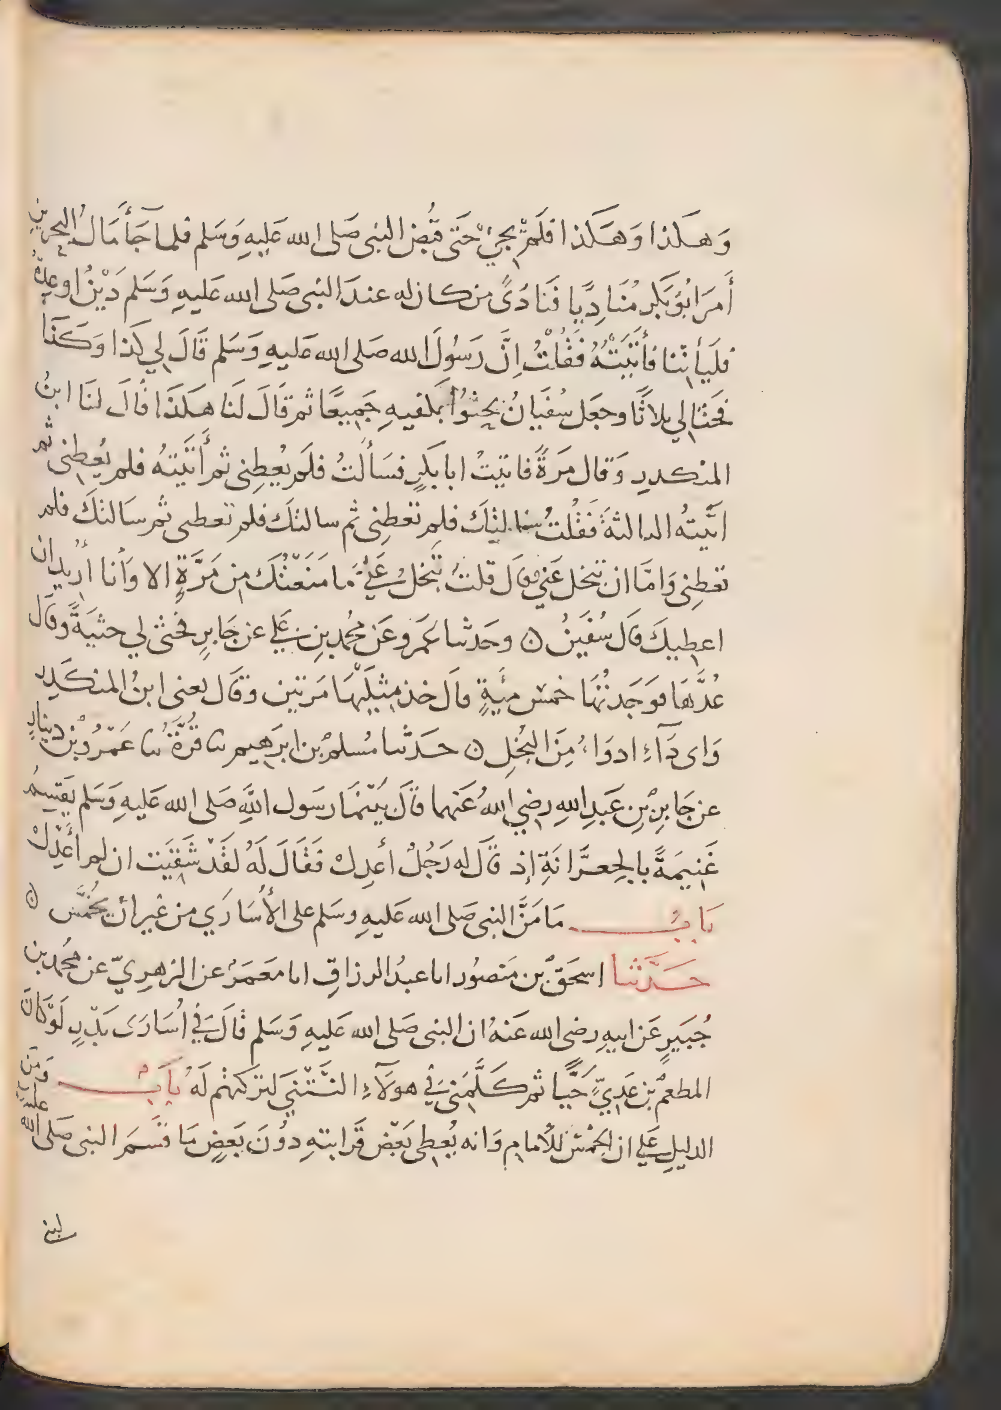 وَهَكَذا وَهَكَذا فَلَمْ يجئ حَتى قُبِضَ النبى صَلى الله عَلَيهِ وَسَلم فلما جَآءَ مَالُ البحرين
أَمَرَ ابُو بَكرٍ مُنَادِيًا فَنَادَى من كان له عندَ النبى صلى الله عَليهِ وَسَلم دَيْنٌ او عِدَةٌ
فليأتنا فأتَيْتُهُ فَقُلْتُ اِنَّ رَسُولَ الله صَلى الله عَليهِ وَسَلم قَالَ لِي كَذا وَكَذَا
فحَثَا لي ثلاثًا وجعَل سُفيَانُ يحثُوا بكفيهِ جَمِيعًا ثم قَالَ لَنَا هكَذَا قالَ لنَا ابنُ
المنكدرِ وَقال مَرةً فاتيتُ ابا بكَرٍ فسَألتُ فلَم يُعطِنى ثم أَتَيتهُ فلم يُعطِنى ثم
اتَيتهُ الثالثةَ فَقُلتُ سالتكَ فلم تعطِنى ثم سالتكَ فلم تعطنى ثم سَالتكَ فلم
تعطِنى وَامّا ان تبخل عَنِي قال قلتَ تَبخلُ عَلَيَّ مَا مَنَعْتُكَ مِن مَرَّةٍ الا وَأنا أُرِيدُ ان
اعطيكَ قال سُفينُ ن وحَدثنا عمرو عَن محُمدِ بنِ عَلي عن جَابرٍ فحثى لي حثيَةً وقال
عُدَّهَا فوَجَدتُهَا خمسَ مِئيةٍ قال خذ مِثلَيْهَا مَرتين وَقال يعنى ابنُ المنكَدِرِ
وَاى دَآءٍ ادوَاءُ مِنَ البُخلِ ن حَدثنا مُسلمُ بن ابرَهيم نا قُرَّةُ نا عَمْرُو بْن دينارٍ
عن جَابِرِ بْنِ عَبدِ اللهِ رضِي اللهُ عَنهما قالَ بَيْنَمَا رسَول اللهِ صَلى الله عليهِ وَسَلم يَقسِمُ
غَنِيمَةً بالجعرَّانَةِ إذ قالَ له رَجُلٌ أعدِلْ فَقَالَ لَهُ لقَدْ شَقيَت ان لم أَعْدِلْ
بَابُ مَا مَنَّ النبى صَلى الله عليهِ وسَلم على الأُسَارَي من غير أن يخُمَّس ن
حَدَّثنا اسحَق بن مَنصُور انا عبدُ الرزاقِ انا مَعمَرٌ عن الزهرِيّ عن محُمد بن
جُبَيرٍ عَن ابيهِ رضى الله عَنهُ ان النبى صَلى الله عليهِ وَسلم قالَ فِي أُسَارَى بَدْرٍ لَوْ كَانَ
المطعمُ بن عَدِيٍّ حَيًّا ثم كَلَّمَنِي فِي هولَآءِ النَّتْنَى لتركتهُم لَهُ بَابُ وَمن
الدليل عَلي ان الخمُسَ للأمامِ وَانه يُعطى بَعْضَ قَرابتهِ دوُنَ بَعضٍ مَا قسَمَ النبى صَلى الله
عليه
لبنى